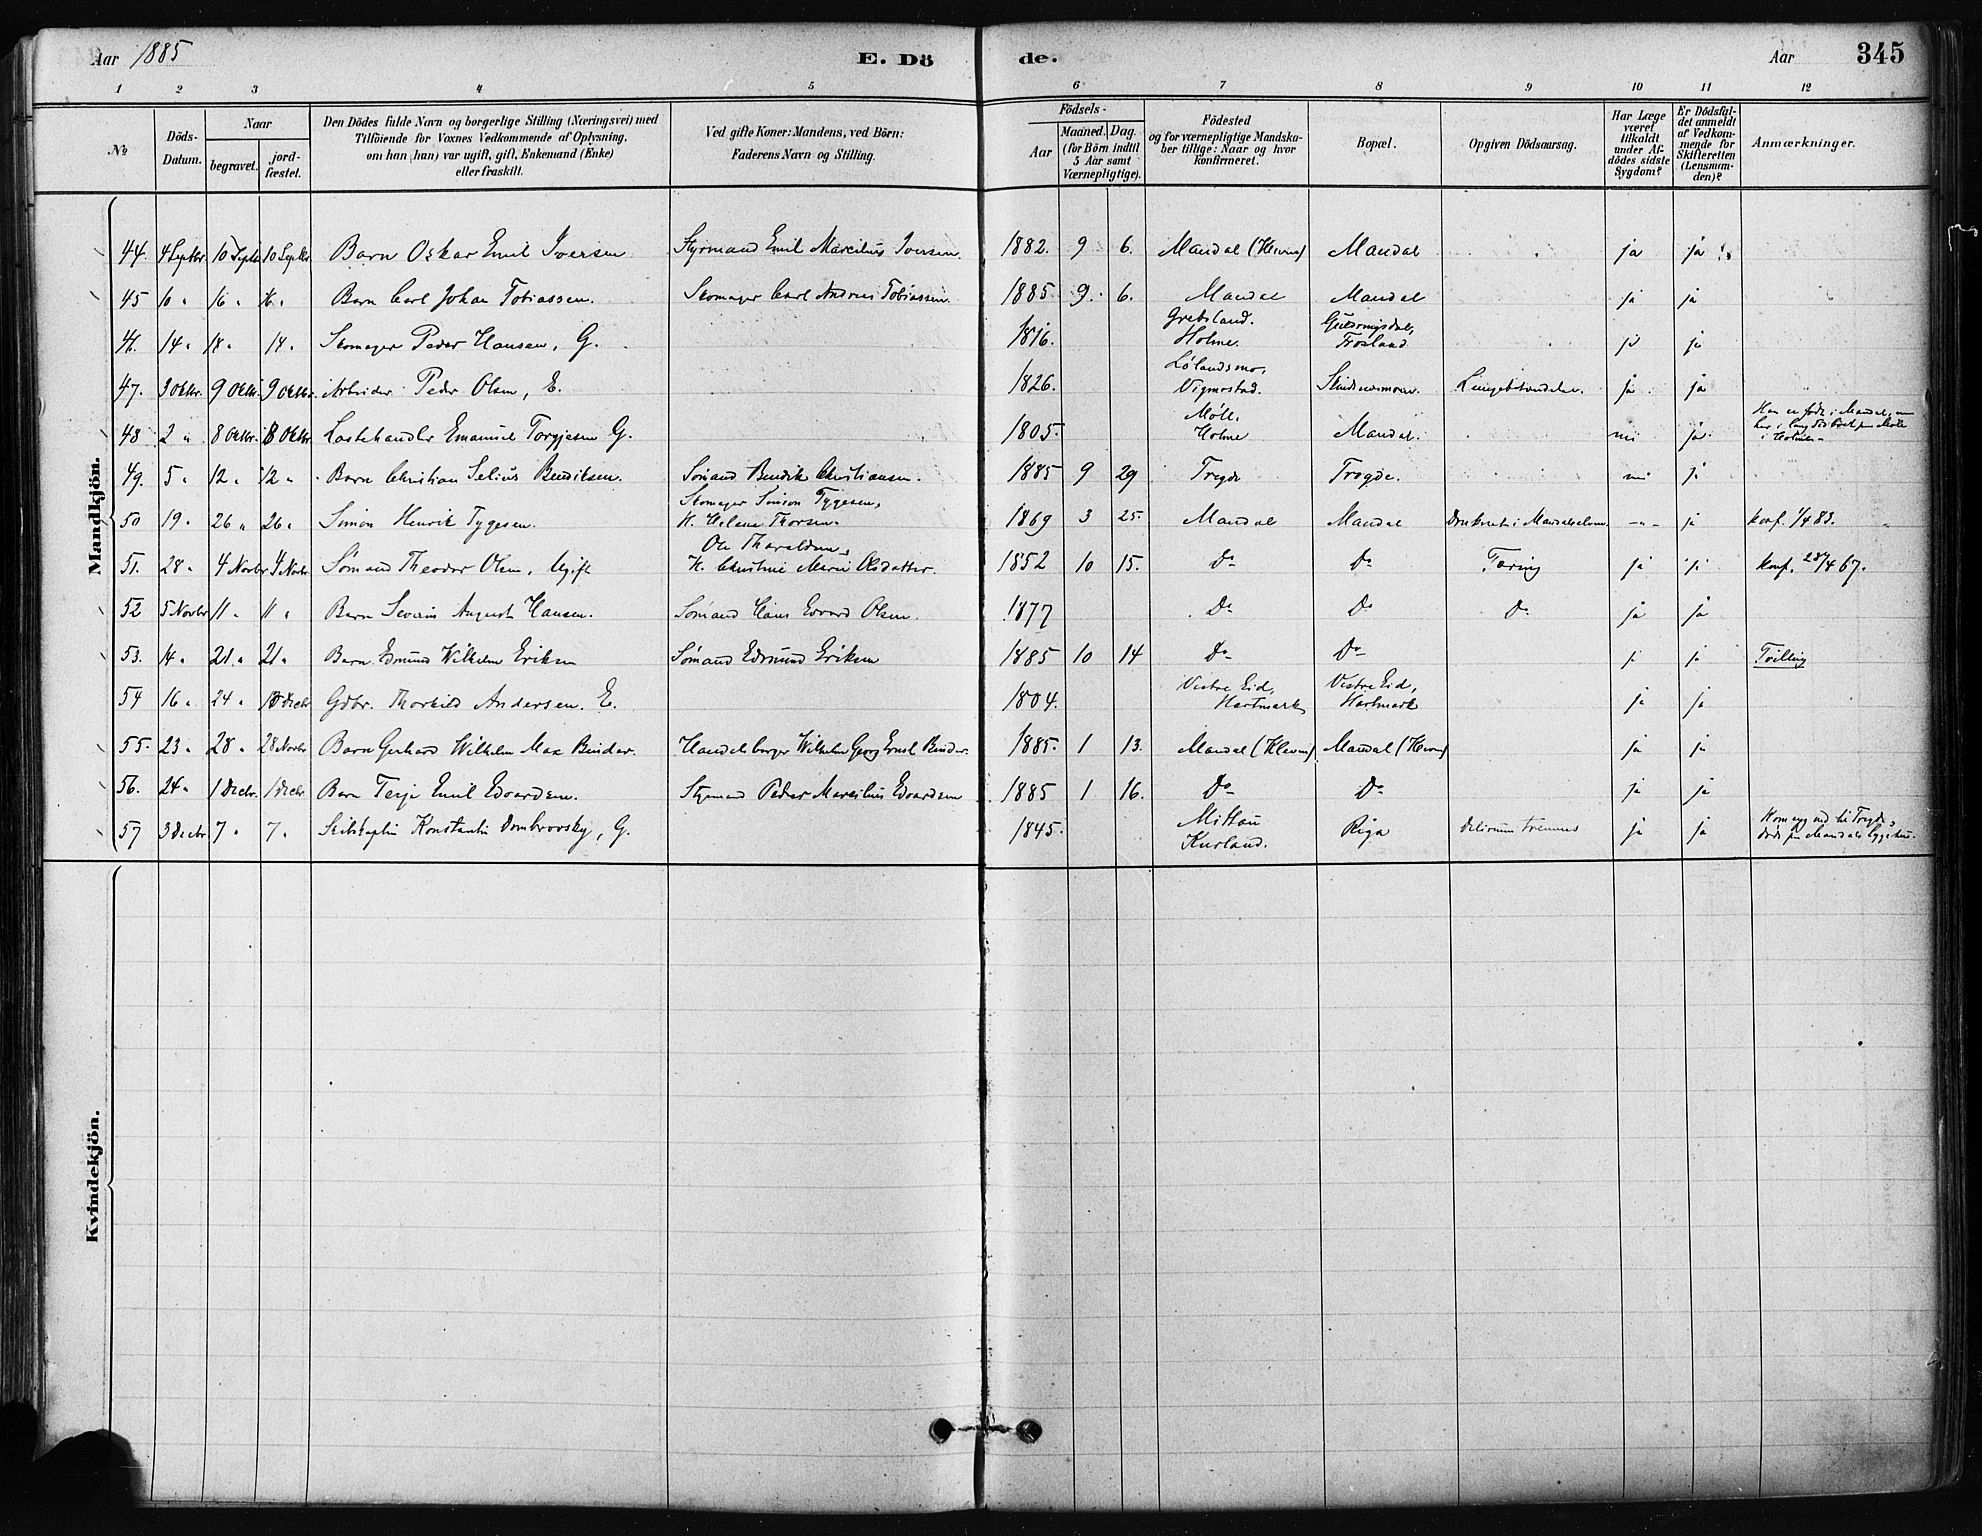 Aar 1885
E. Dö
de.
Aar
345
1 2 3 4 5 6 7 8 9 10 11 12
№
Döds-
Datum.
Naar
begravet.
jord-
fæstet.
Den Dödes fulde Navn og borgerlige Stilling (Næringsvei) med
Tilföiende for Voxnes Vedkommende af Oplysning,
om han (hun) var ugift, gift, Enkemand (Enke)
eller fraskilt.
Ved gifte Koner: Mandens, ved Börn:
Faderens Navn og Stilling.
Födsels-
Aar
Maaned. Dag.
(for Börn indtil
5 Aar samt
Værnepligtige).
Födested
og for værnepligtige Mandska-
ber tillige: Naar og hvor
konfirmeret.
Bopæl.
Opgiven Dödsaarsag.
Har Læge
været
tilkaldt
under Af-
dödes sidste
Sygdom?
Er Dödsfal-
det anmeldt
af Vedkom-
mende for
Skifteretten
(Lensman-
den)?
Anmærkninger.
Mandkjön.
44. 4 Septbr 10 Septbr 10 Septbr Barn Oskar Emil Iversen Styrmand Emil Marcelius Iversen. 1882. 9 6. Mandal (Kleven) Mandal ja ja
45 10 " 16 " 16 " Barn Carl Johan Tobiassen. Skomager Carl Andreas Tobiassen. 1885 9. 6. Mandal Mandal ja ja
46. 14 " 18 " 18 " Skomager Peder Hansen, G. 1816. Grebsland. Holme. Frøsland. ja ja
47. 3 Oktbr. 9 Oktbr. 9 Oktbr. Arbeider Peder Olsen, E. 1826. Lølandsmo, Vigmostad. Lungebetændelse. ja ja
48 2 " 8 Oktbr. 8 Oktbr Emanuel Torgjesen G. 1805. Møll. Holme Mandal. nei ja Han er født i Mandal, men
i Holme.
49. 5 " 12 " 12 " Barn Christian Selius Bendiksen. Sømand Bendik Christiansen. 1885 9 29 Tregde Tregde. nei ja
50 19 " 26 " 26 " Simon Henrik Tygesen. Skomager Simon Tygesen, H. Helene Thorsen. 1869 3 25. Mandal Mandal Druknet i Mandalselven -"- ja konf. 1/4 83.
51. 28 " 4 Novbr 4 Novbr Sømand Theodor Olsen, Ugift Ole Tharaldsen, H. Christine Marie Olsdatter. 1852 10 15. Do Do Tæring ja ja konf. 28/4 67.
52 5 Novbr 11 " 11 " Barn Severin August Hansen. Sømand Hans Edvard Olsen. 1877 Do Do Do ja ja
53. 14 " 21 " 21 " Barn Edmund Wilhelm Eriksen Sømand Edmund Eriksen 1885 10 14 Do Do ja ja Tvilling
54 16 " 24 " Gdbr. Thorkild Andersen. E. 1804. Vestre Eid, Hartmark Vestre Eid, Hartmark ja ja
55. 23 " 28 " 28 Novbr Barn Gerhard Wilhelm Max Binder. Handelsborger Wilhelm Georg Ernst Binder. 1885. 1 13. Mandal (Kleven) Mandal (Kleven) ja ja
56. 24 " 1 Decbr. 1 Decbr. Barn Terje Emil Edvardsen. Styrmand Peder Marcelius Edvardsen 1885 1 16. Do Do ja ja
57 3 Decbr 7 " 7 " Skibskaptein Konstantin Dombrovsky, G. 1845. Mittau Kurland. Riga Delirium tremens ja ja Kom syg ind til Tregde,
døde paa Mandals Sygehus.
Kvindekjön.